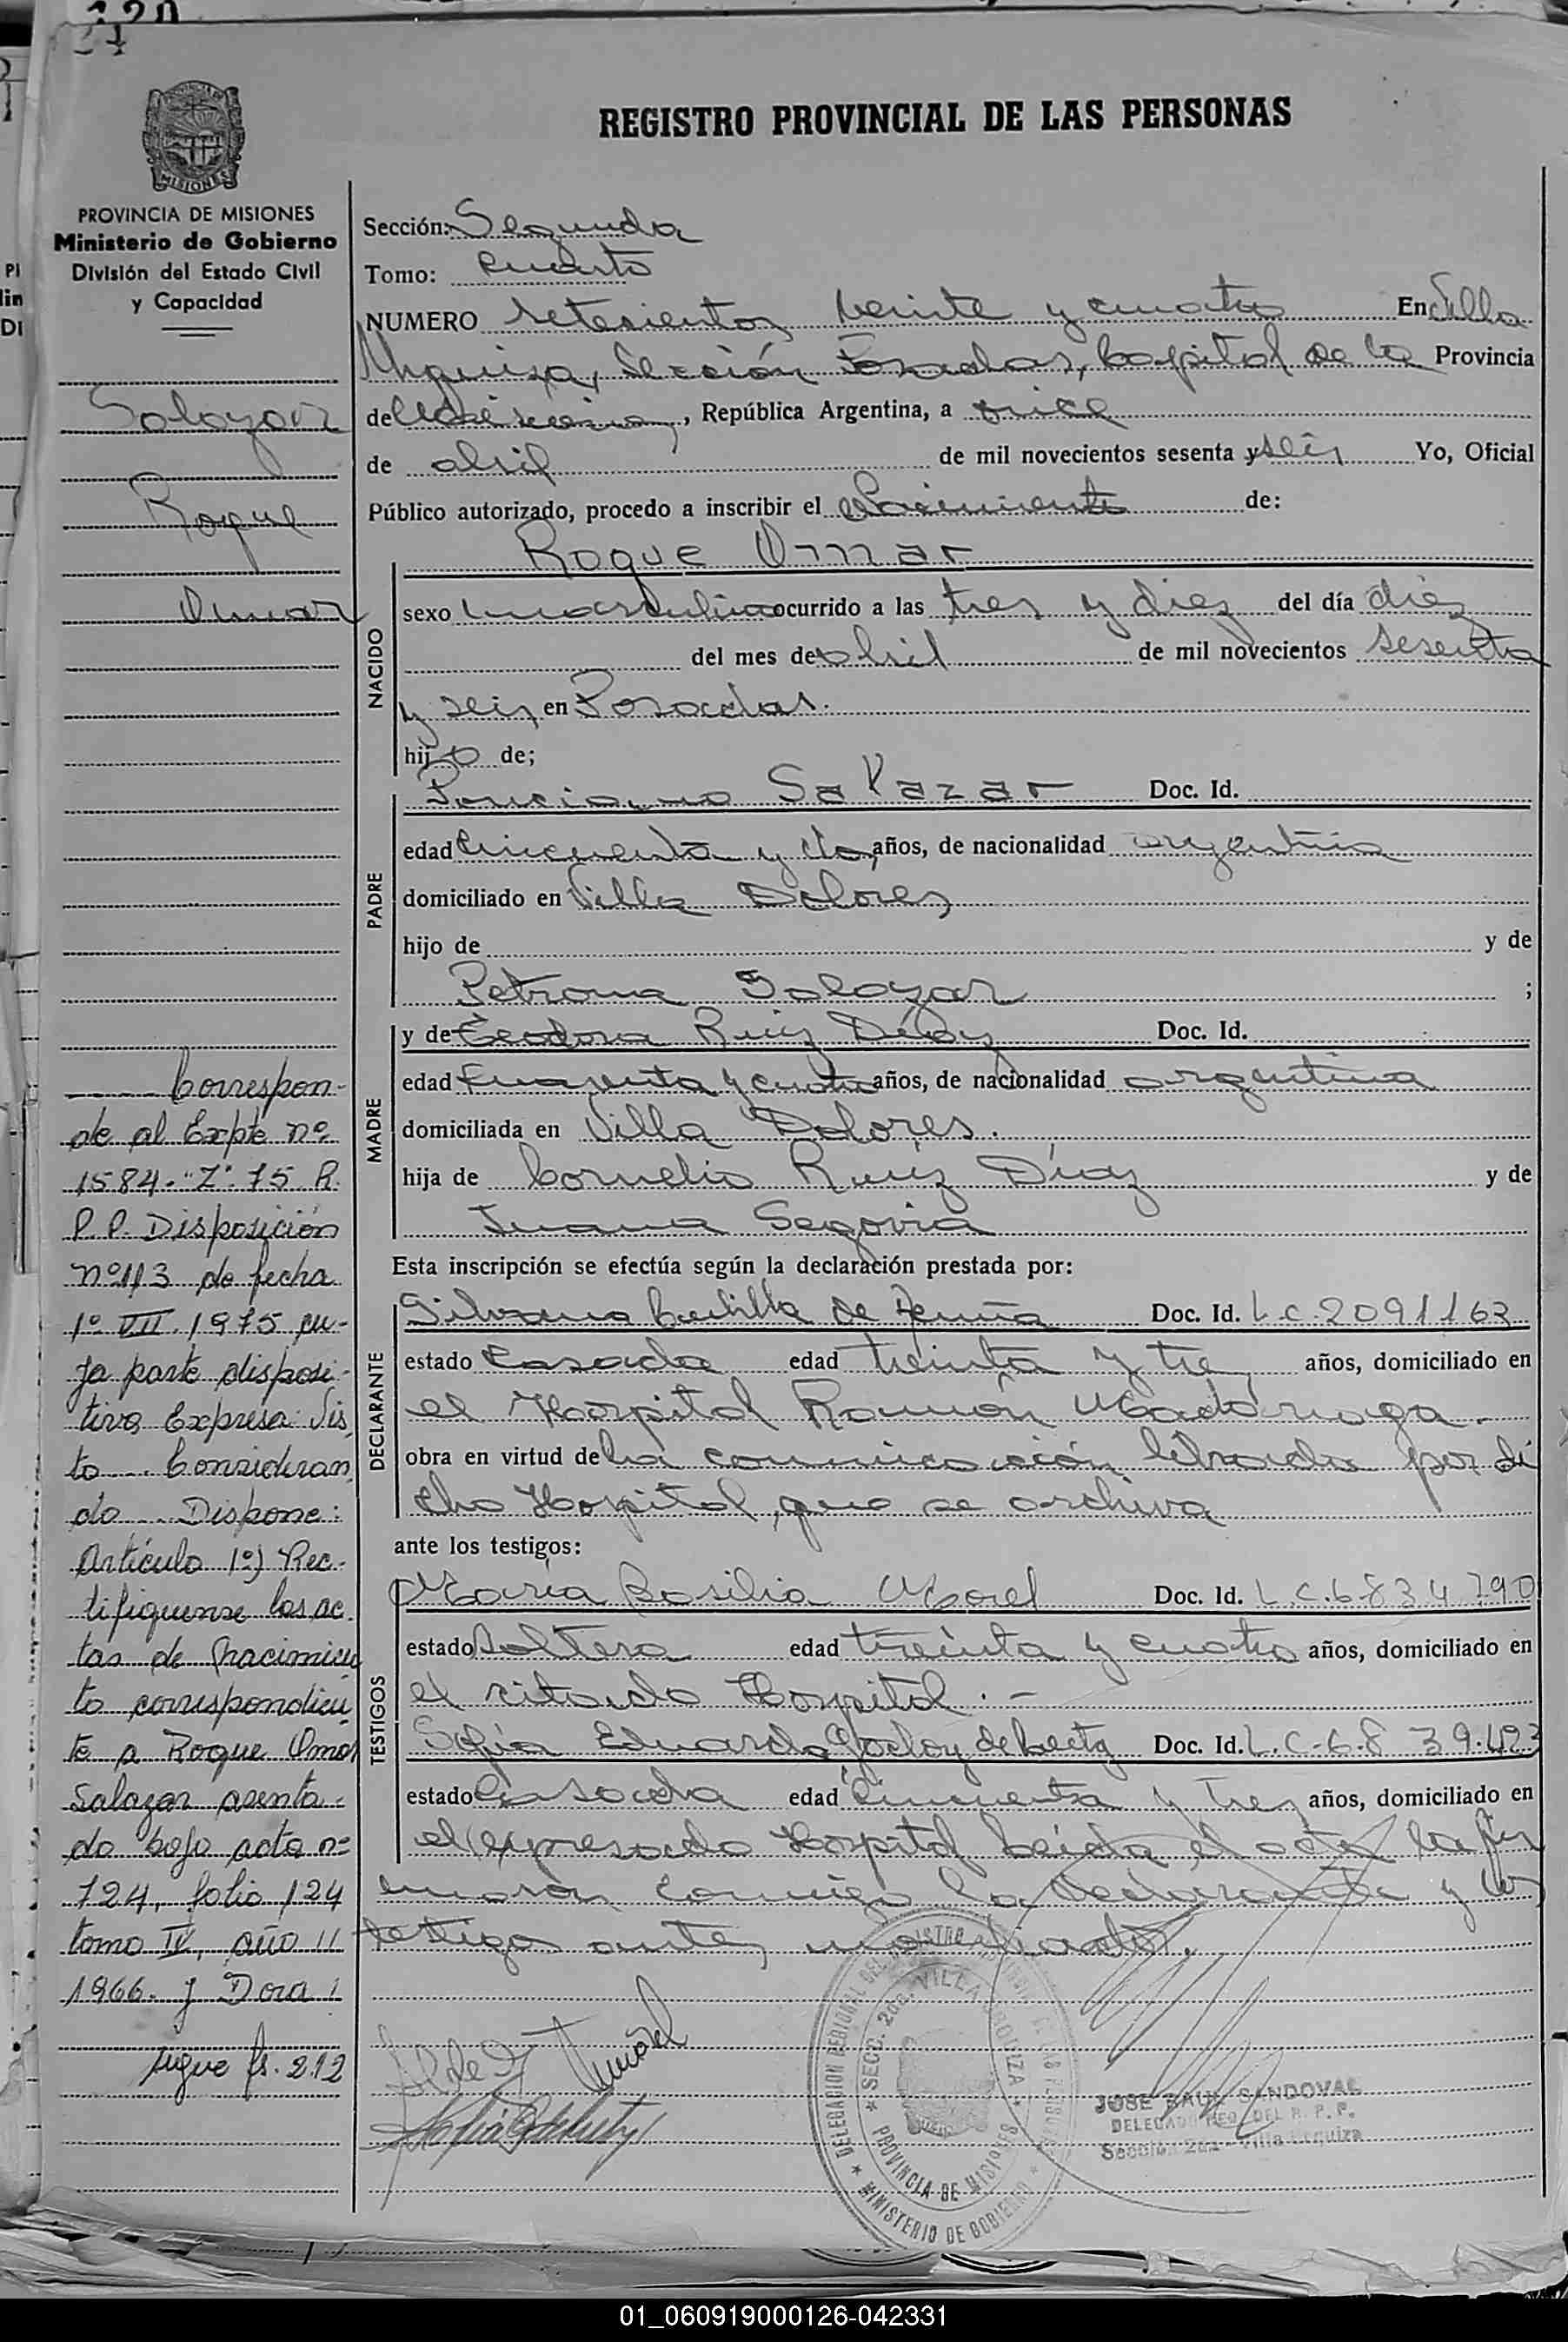 120
REGISTRO PROVINCIAL DE LAS PERSONAS
MISIONES
PROVINCIA DE MISIONES
Ministerio de Gobierno
División del Estado Civil
y Capacidad
Salazar
Roque
Omar
Correspon-
de al Expte nº
1584-"Z"-75 R.
P.P. Disposición
nº113 de fecha
1º VII.1975 cu-
ya parte disposi-
tiva Expresa: Vis
to ... Consideran
do ... Dispone:
Artículo 1º) Rec-
tifiquense las ac
tas de nacimien
to correspondien
te a Roque Omar
Salazar asenta-
do bajo acta nº
724, folio 124
tomo IV, año
1966. y Dora
sigue fs. 212
Sección: Segunda
Tomo: cuarto
NUMERO setesientos veinte y cuatro En Villa
Urquiza, Sección Posadas, Capital de la Provincia
de Misiones, República Argentina, a once
de abril de mil novecientos sesenta y seis Yo, Oficial
Público autorizado, procedo a inscribir el Nacimiento de:
Roque Omar
NACIDO
sexo masculino ocurrido a las tres y diez del día diez
del mes de abril de mil novecientos sesenta
y seis en Posadas.
hijo de;
PADRE
Ponciano Salazar Doc. Id.
edad cincuenta y dos años, de nacionalidad argentina
domiciliado en Villa Dolores
hijo de y de
Petrona Salazar ;
MADRE
y de Teodora Ruiz Díaz Doc. Id.
edad cuarenta y cuatro años, de nacionalidad argentina
domiciliada en Villa Dolores.
hija de Cornelio Ruiz Díaz y de
Juana Segovia
Esta inscripción se efectúa según la declaración prestada por:
DECLARANTE
de Doc. Id. L.C.2091163
estado casada edad treinta y tres años, domiciliado en
el Hospital Ramón Madariaga.
obra en virtud de la comunicación librada por di
cho Hospital, que se archiva
ante los testigos:
TESTIGOS
María Basilia Morel Doc. Id. L.C.6834790
estado soltera edad treinta y cuatro años, domiciliado en
el citado Hospital.-
Sofía Eduarda Godoy de Doc. Id. L.C.6.839.423
estado casada edad cincuenta y tres años, domiciliado en
el expresado Hospital leída el acta la fir
maron conmigo la declarante y los
testigos antes
SECC. 2da. VILLA URQUIZA
PROVINCIA DE MISIONES
DELEGACION REGIONAL DEL REGISTRO PROVINCIAL DE LAS PERSONAS
MINISTERIO DE GOBIERNO
JOSE RAUL SANDOVAL
DELEGADO REG. DEL R. P. P.
Sección 2da - Villa Urquiza
01_060919000126-042331